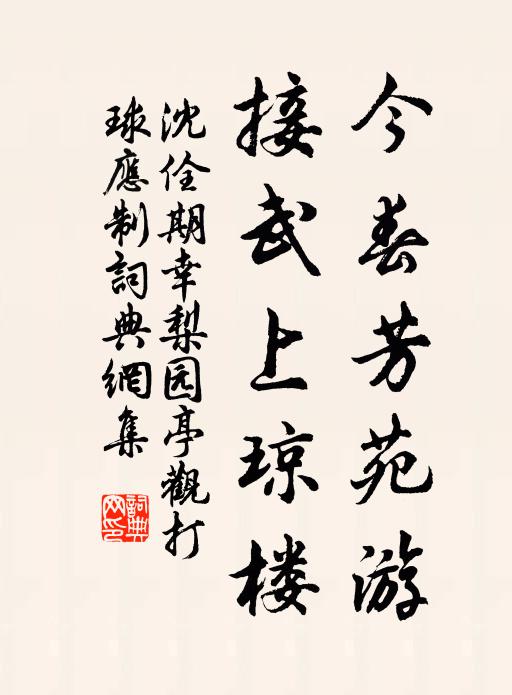 今春芳苑游
接武上琼楼
沈佺期幸梨园亭觀打
球應制詞典網集
詞典
网印